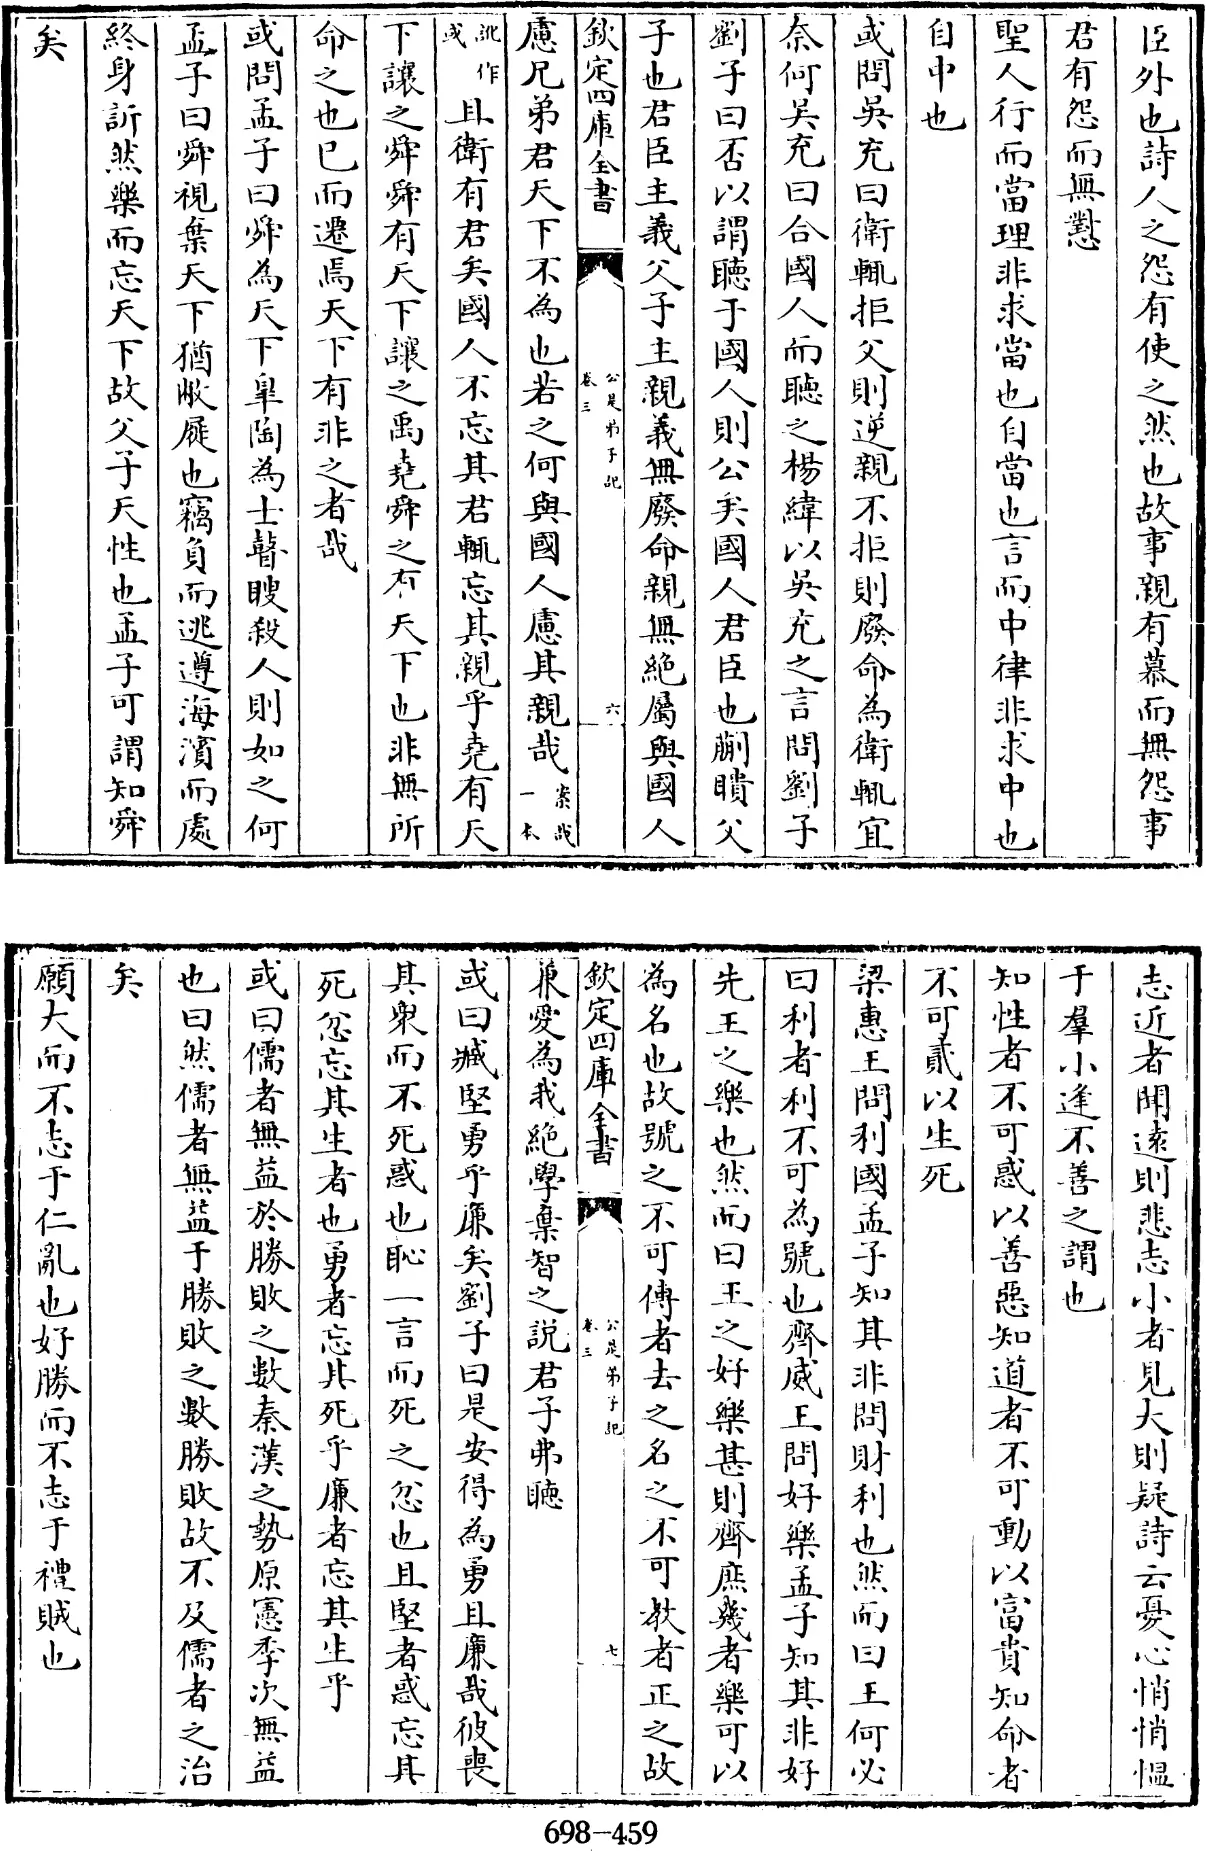 臣外也詩人之怨有使之然也故事親有慕而無怨事
君有怨而無懟
聖人行而當理非求當也自當也言而中律非求中也
自中也
或問吳充曰衛輒拒父則逆親不拒則廢命為衛輒宜
奈何吳充曰合國人而聽之楊緯以吳充之言問劉子
劉子曰否以謂聽于國人則公矣國人君臣也蒯聵父
子也君臣主義父子主親義無廢命親無絶屬與國人
欽定四庫全書
公是弟子記
卷三
六
慮兄弟君天下不為也若之何與國人慮其親哉案哉一本
訛作或且衛有君矣國人不忘其君輒忘其親乎堯有天
下讓之舜舜有天下讓之禹堯舜之有天下也非無所
命之也已而遷焉天下有非之者哉
或問孟子曰舜為天下臯陶為士瞽瞍殺人則如之何
孟子曰舜視棄天下猶敝屣也竊負而逃遵海濱而處
終身訢然樂而忘天下故父子天性也孟子可謂知舜
矣
志近者聞遠則悲志小者見大則疑詩云憂心悄悄愠
于羣小逢不善之謂也
知性者不可惑以善惡知道者不可動以富貴知命者
不可貳以生死
梁惠王問利國孟子知其非問財利也然而曰王何必
曰利者利不可為號也齊威王問好樂孟子知其非好
先王之樂也然而曰王之好樂甚則齊庶幾者樂可以
為名也故號之不可傳者去之名之不可教者正之故
欽定四庫全書
公是弟子記
卷三
七
兼愛為我絶學棄智之說君子弗聽
或曰臧堅勇乎廉矣劉子曰是安得為勇且廉哉彼喪
其衆而不死惑也恥一言而死之忿也且堅者惑忘其
死忿忘其生者也勇者忘其死乎廉者忘其生乎
或曰儒者無益於勝敗之數秦漢之勢原憲季次無益
也曰然儒者無益于勝敗之數勝敗故不及儒者之治
矣
願大而不志于仁亂也好勝而不志于禮賊也
698-459